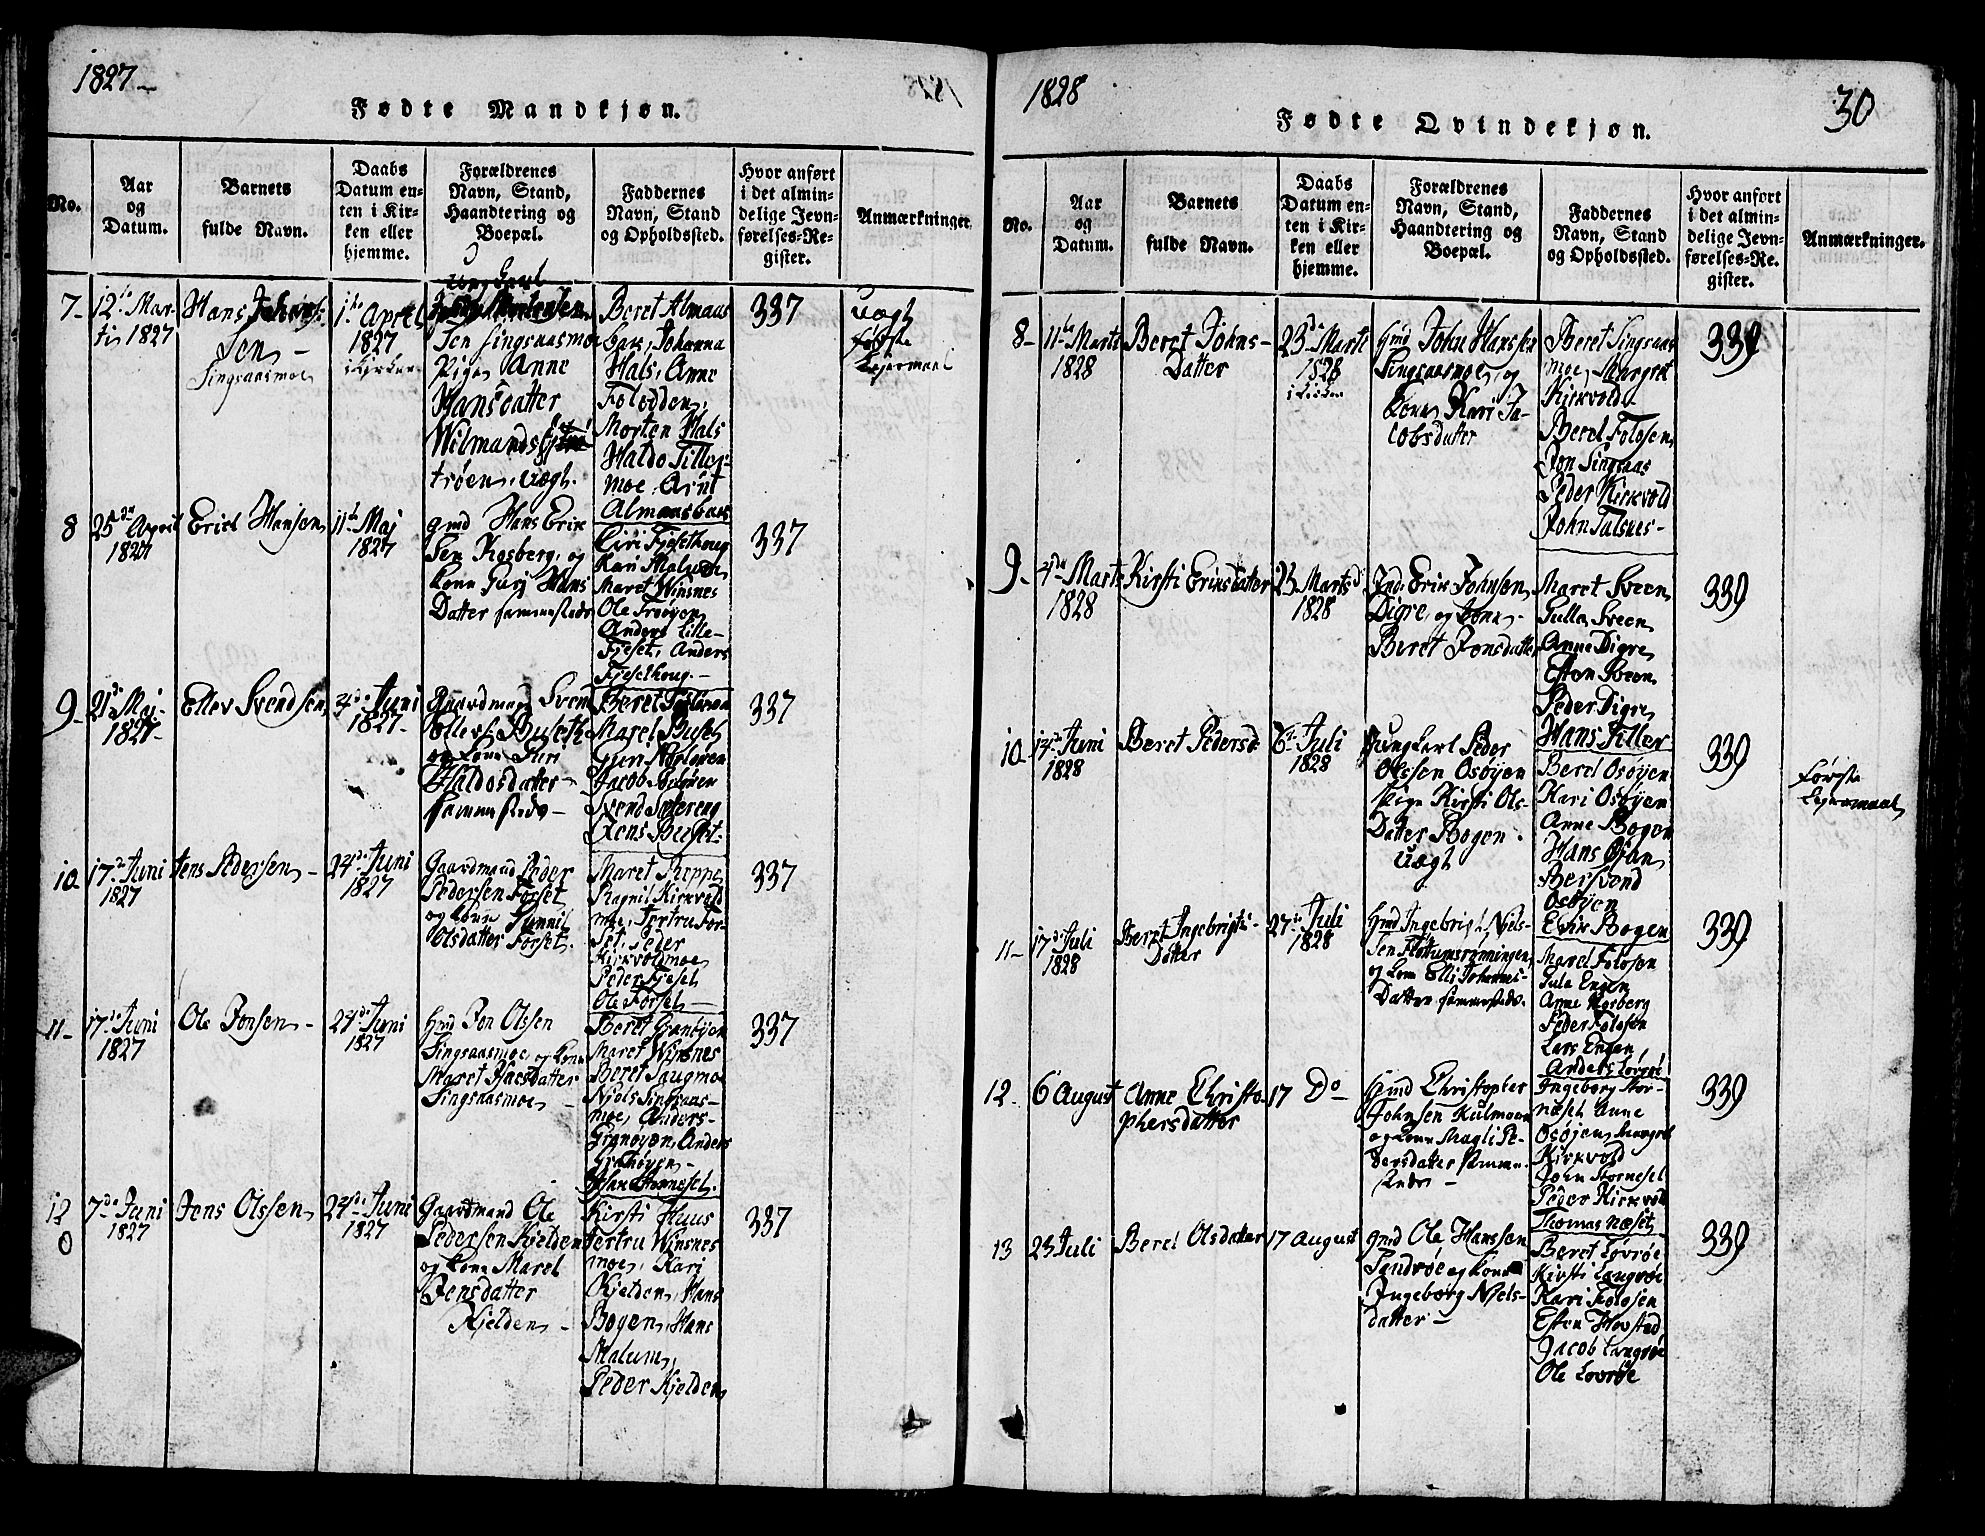 1827
Fødte Mandkjøn.
No.
Aar
og
Datum.
Barnets
fulde Navn.
Daabs
Datum en-
ten i Kir-
ken eller
hjemme.
Forældrenes
Navn, Stand,
Haandtering og
Boepæl.
Faddernes
Navn, Stand
og Opholdssted.
Hvor anført
i det almin-
delige Jevn-
førelses-Re-
gister.
Anmærkninger
7
12te Mar-
tii 1827
Hans
sen
Singsaasmoe
1ste April
1827
i Kirken
Ung Carl
sen Singsaasmoe
Pige Anne
Hansdatter
trøen uægt.
Beret Almaas
bak, Johanna
Hals, Anne
Folodden
Morten Hals
Haldo Tiller-
moe, Arnt
Almaasbak
337
uægt
første
Lejermaal
8
25de April
1827
Erich Hansen
11te Maj
1827
gmd Hans Erik
sen Kosberg og
Kone Guri Hans
Datter sammesteds
Ciri Fjeselhoug
Kari Malum
Maret Winsnes
Ole Trøøyen
Anders Lille-
Fjeset, Anders
Fjeselhoug
337
9
21de Maj
1827
Ellev Svendsen
Juni
1827
Gaardmand Svend
Ellevs. Buseth
og Kone Guri
Haldosdatter
sammesteds
Beret
Maret Buset
Guri
Jacob
Svend
Jens Buset
337
10
17de Juni
1827
Jens Pedersen
24de Juni
1827
Gaardmand Peder
Pedersen Forset
og Kone Gunnil
Olsdatter Forset.
Maret Reppe
Ragnil Kirkvold
moe, Jertru For-
set, Peder
Kirkvoldmoe
Peder Fjeset
Ole Forset
337
11
17de Juni
1827
Ole Jonsen
24de Juni
1827
Hmd Jon Olssen
Singsaasmoe og Kone
Maret
Singsaasmoe
Beret Granøyen
Maret Winsnes
Beret Haugmo
Njels Singsaas-
moe, Anders
Granøyen, Anders
Granøyen
337
12
7de Juni
1827
Jens Olssen
24de Juni
1827
Gaardmand Ole
Pedersen Kjelden
og Kone Maret
Jensdatter
Kjelden
Kirsti Huus
Jertru Winsnes
moe, Kari
Kjelden, Hans
Bogen, Hans
Malum,
Peder Kjelden
337
1828
30
Fødte Qvindekjøn.
No.
Aar
og
Datum.
Barnets
fulde Navn.
Daabs
Datum en-
ten i Kir-
ken eller
hjemme.
Forældrenes
Navn, Stand,
Haandtering og
Boepæl.
Faddernes
Navn, Stand
og Opholdssted.
Hvor anført
i det almin-
delige Jevn-
førelses-Re-
gister.
Anmærkninger.
8
11te Marts
1828
Beret Johns-
Datter
23de Marts
1828
i Kirken
Hmd John Hanssen
Singsaasmoe, og
Kone Kari Ja-
cobsdatter
Beret Singsaas
moe, Margret
Kirkvold
Beret Folosen
Jon Singsaas
Peder Kirkvold
John Talsnes
339
9
Marts
1828
Kirsti Eriksdatter
23 Marts
1828
Ind. Erik Johnsen
Digre, og Kone
Beret Jonsdatter
Maret Sveen
Gulla Sveen
Anne Digre
Esten Sveen
Peder Digre
Hans Tiller
339
10
Juni
1828
Beret Pedersd
6te Juli
1828
Ungkarl Peder
Olssen Osøyen
Pige Kirsti Ols
Datter Bogen.
uægt
Beret Osøyen
Kari Osøyen
Anne Bogen
Hans Øian
Bersvend
Osøyen
Erik Bogen
339
første
Lejermaal
11
17de Juli
1828
Beret Ingebrigts-
Datter
27de Juli
1828
Hmd Ingebrigt Njels-
sen Flottumsrønningen
og Kone Elli Johannes-
Datter sammesteds.
Maret Folosen
Gule Engen
Anne Kosberg
Peder Folosen
Lars Engen
Anders Løvrøe
339
12
6 August
Anne Christo-
phersdatter
17 Do
Hmd Christopher
Johnsen Kulmoen
og Kone Magli Pe-
dersdatter sammen
steds
Ingeborg Stor-
næset Anne
Osøjen Margret
Kirkvold
John Storneset
Peder Kirkvold
Thomas Næset
339
13
23 Juli
Beret Olsdatter
17 August
gmd Ole Hanssen
Sendrøe og Kone
Ingeborg Njels-
datter
Beret Løvrøe
Kirsti Langrøe
Kari Folosen
Esten Hovstad
Jacob Langrøe
Ole Løvrøe
339